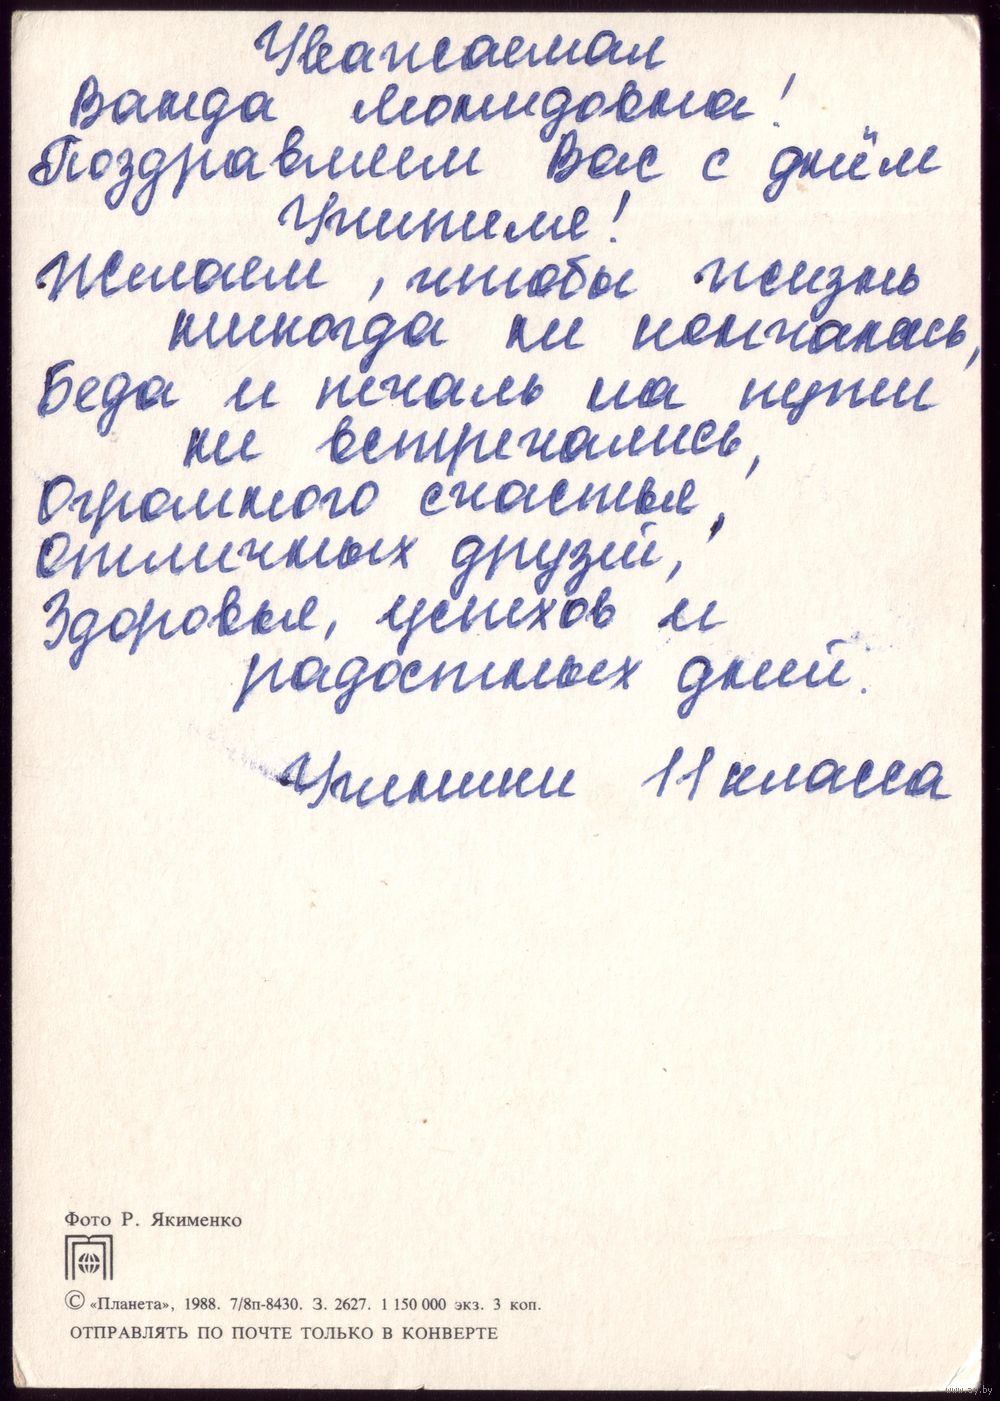 Уважаемая
Ванда Леонидовна!
Поздравляем Вас с днём
Учителя!
Желаем, чтобы жизнь
никогда не кончалась,
Беда и печаль на пути
не встречались,
Огромного счастья,
отличных друзей,
Здоровья, успехов и
радостных дней.
Ученики 11 класса
Фото Р. Якименко
© «Планета», 1988. 7/8п-8430. З. 2627. 1 150 000 экз. 3 коп.
ОТПРАВЛЯТЬ ПО ПОЧТЕ ТОЛЬКО В КОНВЕРТЕ
www.ay.by